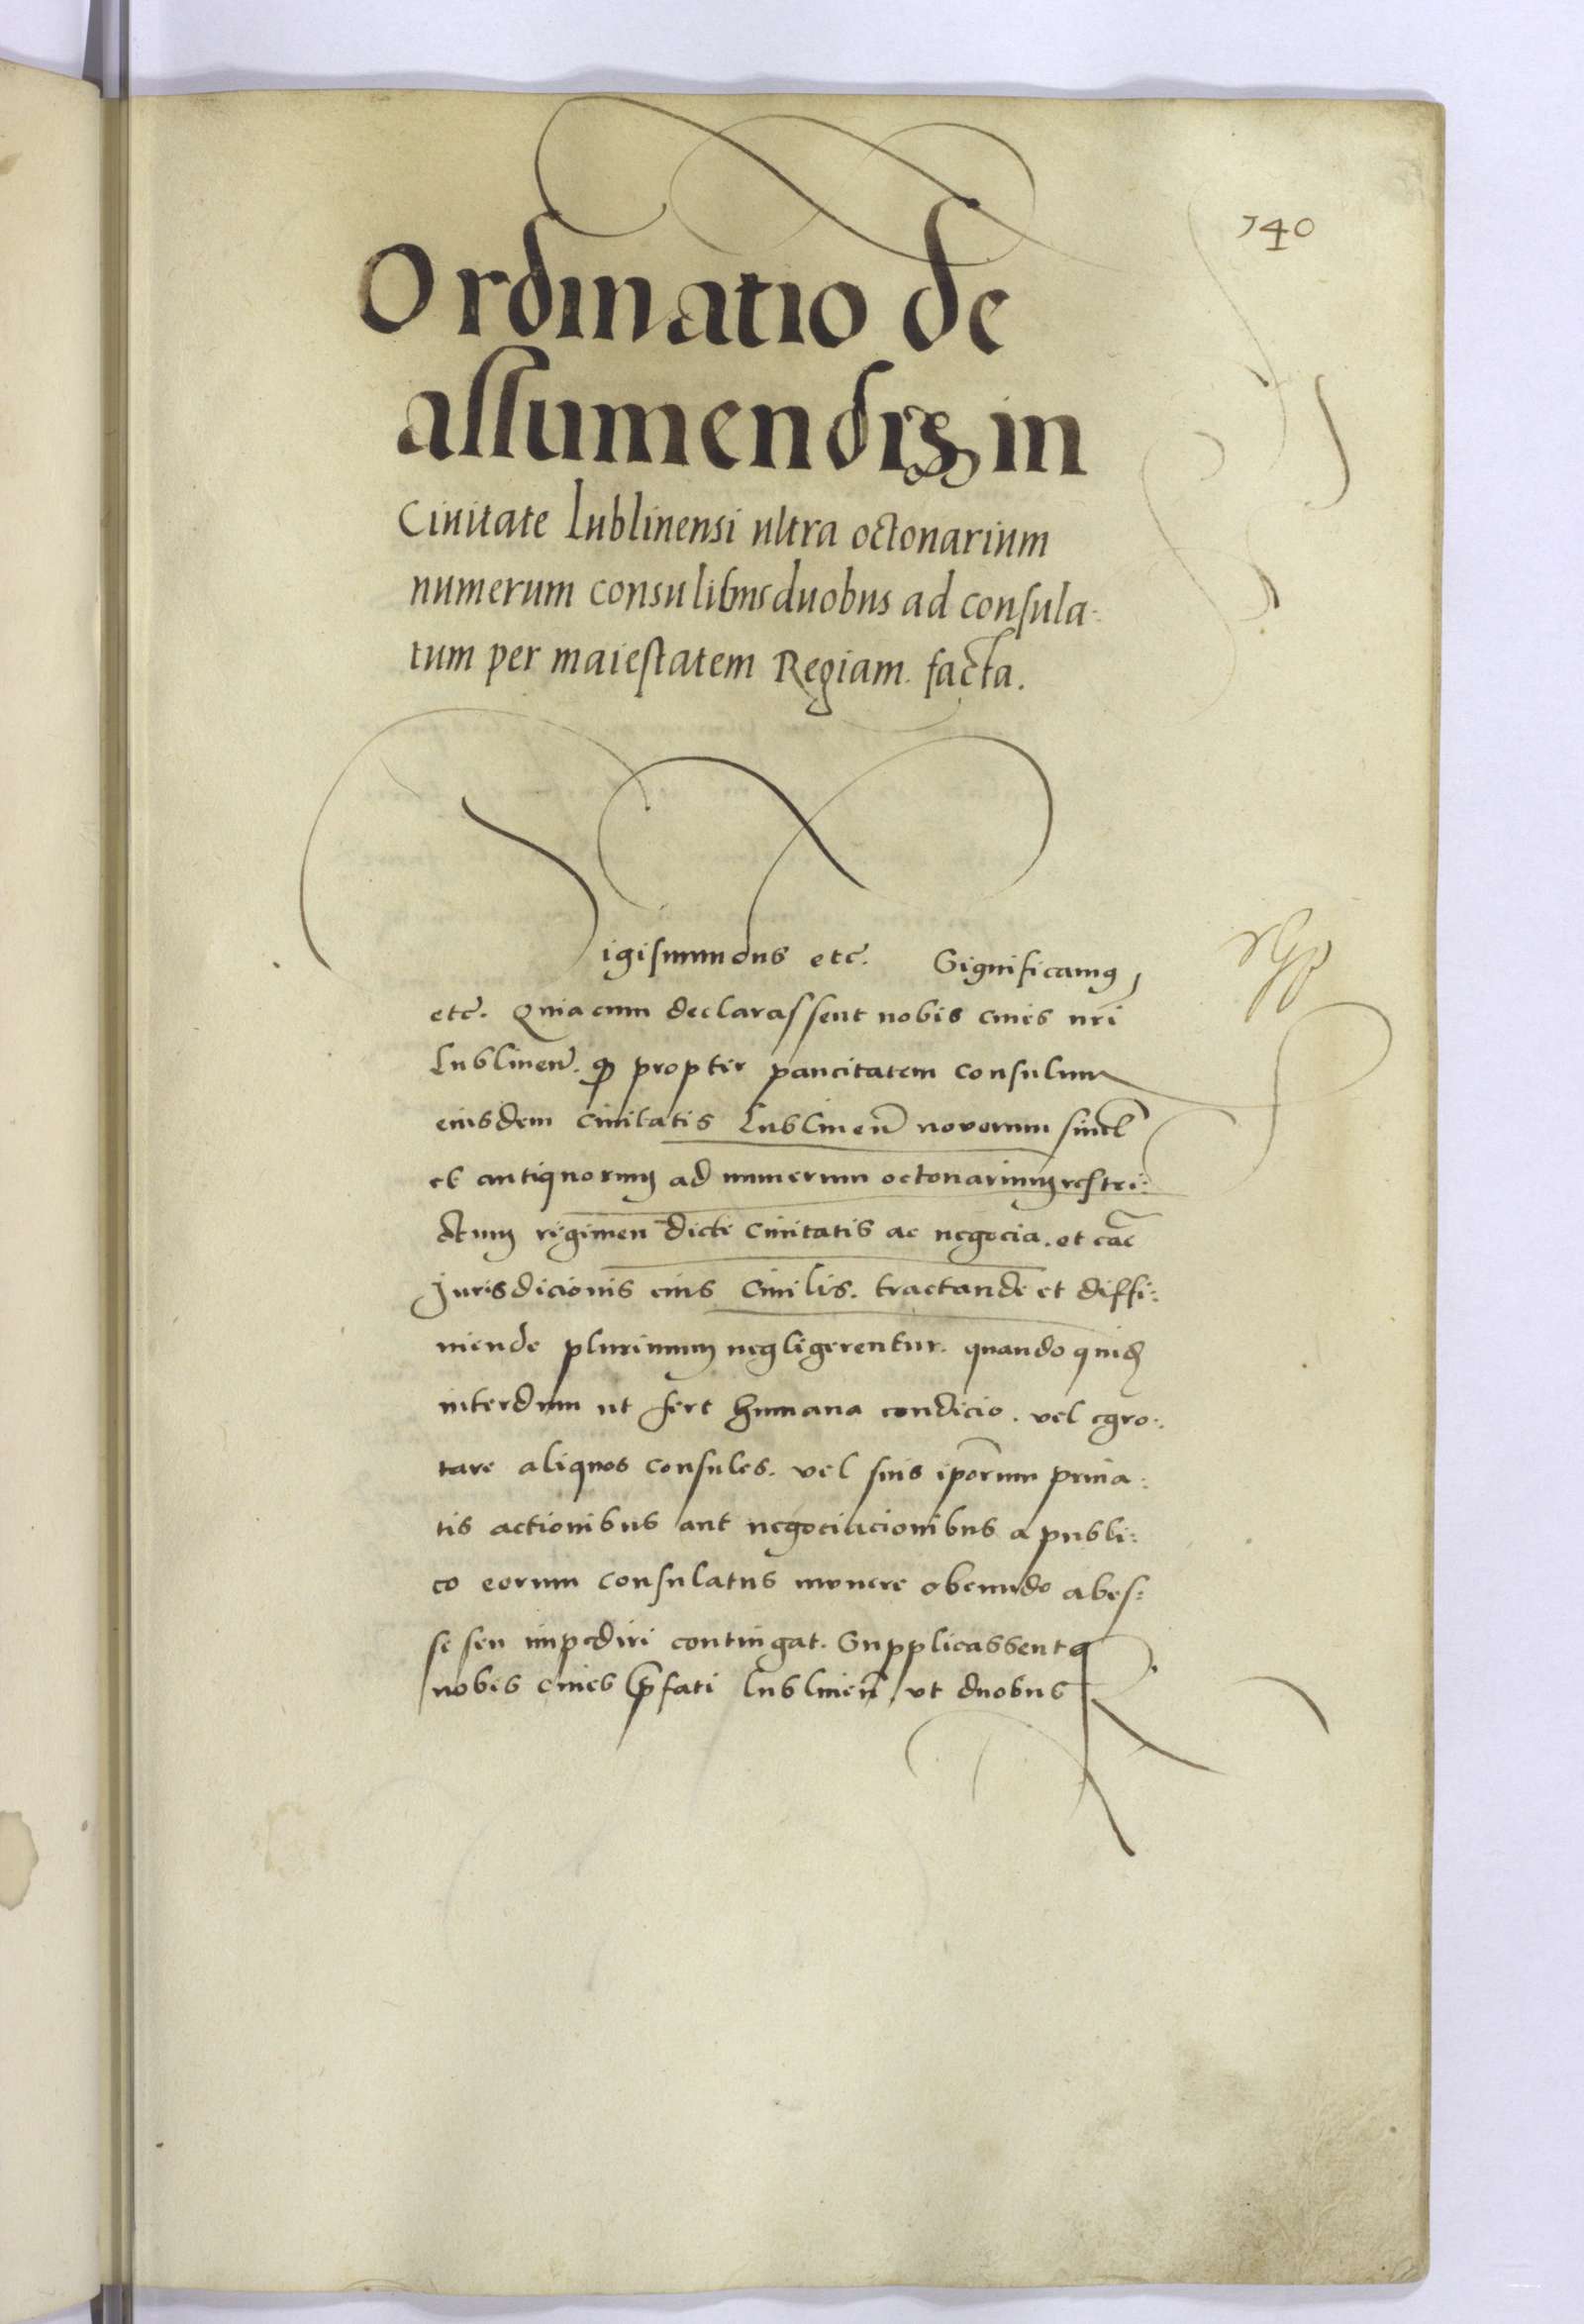 140
Ordinatio de
assumendis in
Ciuitate Lublinensi ultra octonarium
numerum consulibus duobus ad consula-
tum per maiestatem Regiam. facta.
igismundus etc. Significamus
etc. Quia cum declarassent nobis ciues nri
Lublinen. quod propter paucitatem consulum
eiusdem ciuitatis Lublinen nouorum simul
et antiquorum ad numerum octonarium restri:
ctum regimen dicte Ciuitatis ac negocia. et cac
Jurisdicionis eius Ciuilis. tractande et diffi:
niende plurimum negligerentur. quando quidem
interdum ut fert humana condicio. vel egro:
tare aliquos consules. vel suis iporum priua:
tis actionibus aut negociacionibus a publi:
co eorum consulatus munere obeundo abes:
se seu impediri contingat. Supplicassentq
nobis ciues prefati Lublinen ut duobus